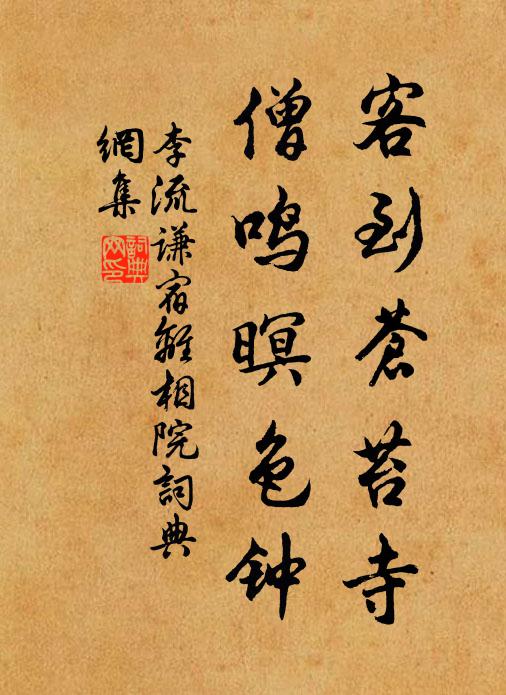 客到蒼苔寺
僧鸣暝色钟
李流谦宿離相院詞典
網集
詞典
网印